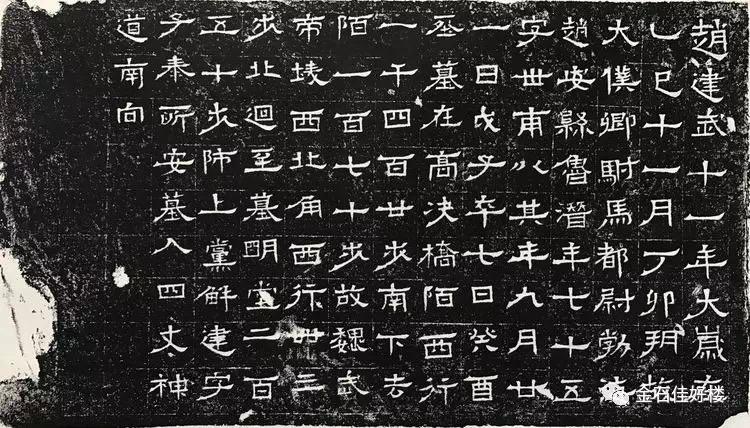 趙建武十一年大歲在
乙巳十一月丁卯朔故
大僕卿駙馬都尉勃海
趙安縣魯潛年七十五
字世甫以其年九月廿
一日戊子卒七日癸酉
葬墓在高決橋陌西行
一千四百廿步南下去
陌一百七十步故魏武
帝陵西北角西行卌三
步北迴至墓明堂二百
五十步師上黨解建字
子奉所安墓入四丈神
道南向
金石佳好楼